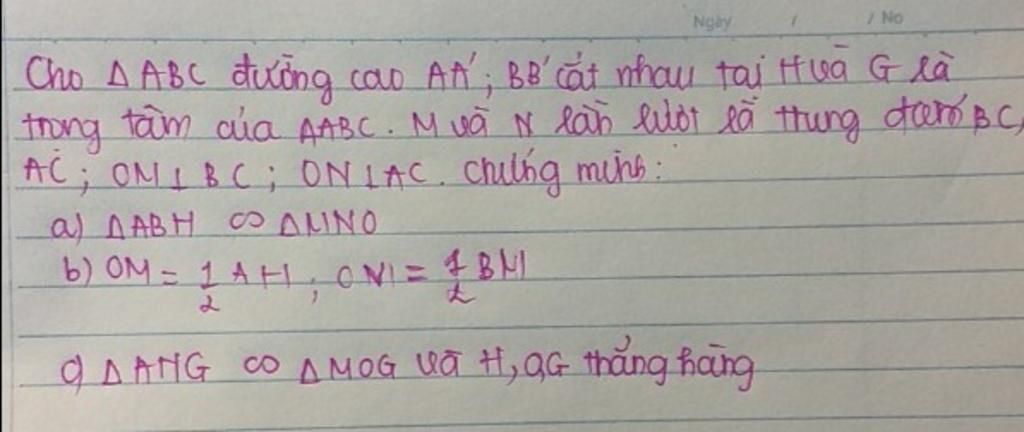 Ngày / / No
Cho Δ ABC đường cao AA'; BB' cắt nhau tại H và G là
trọng tâm của ΔABC. M và N lần lượt là trung điểm BC,
AC; OM ⊥ BC; ON ⊥ AC. Chứng minh:
a) ΔABH ∞ ΔMNO
b) OM = 1/2 AH; ON = 1/2 BH
c) Δ AHG ∞ Δ MOG và H, O, G thẳng hàng